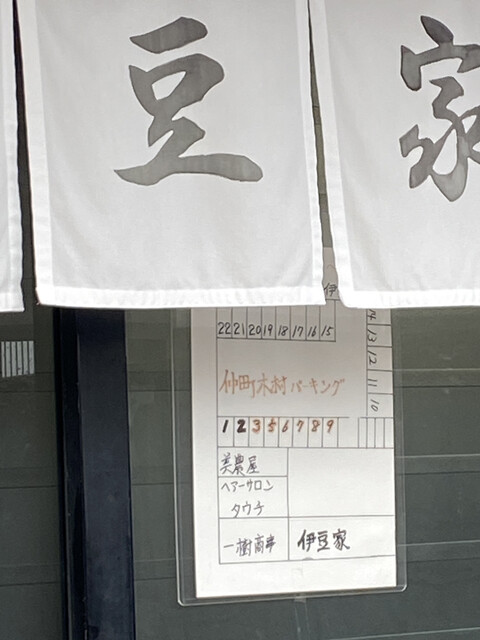 豆 家
伊
22 21 20 19 18 17 16 15
14 13 12 11 10
仲町木村パーキング
1 2 3 5 6 7 8 9
美農屋
ヘアーサロン
タウチ
一樹商事 伊豆家